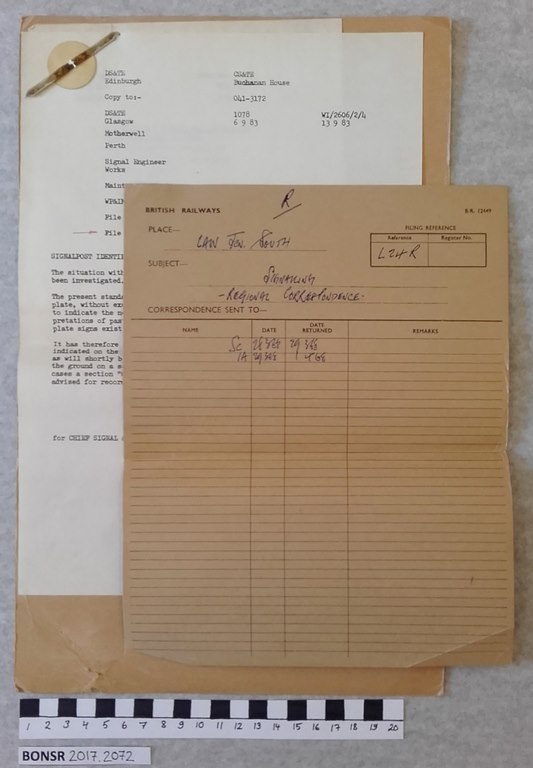 DSATE CSATE
Edinburgh Buchanan House
Copy to:- 041-3172
DSATE 1078 WI/2606/2/4
Glasgow 6 9 83 13 9 83
Motherwell
Perth
Signal Engineer
Works
Maint
File
File
SIGNALPOST IDENTI
The situation with
been investigated.
The present stand
plate, without ex
to indicate the n
pretations of pas
plate signs exist
It has therefore
indicated on the
as will shortly b
the ground on a s
cases a section "
advised for recor
for CHIEF SIGNAL
R
BRITISH RAILWAYS B.R. 12449
PLACE— LAW JCN. SOUTH
FILING REFERENCE
Reference Register No.
L24R
SUBJECT— SIGNALLING
- REGIONAL CORRESPONDENCE -
CORRESPONDENCE SENT TO—
NAME DATE DATE RETURNED REMARKS
1 2 3 4 5 6 7 8 9 10 11 12 13 14 15 16 17 18 19 20
BONSR 2017.2072